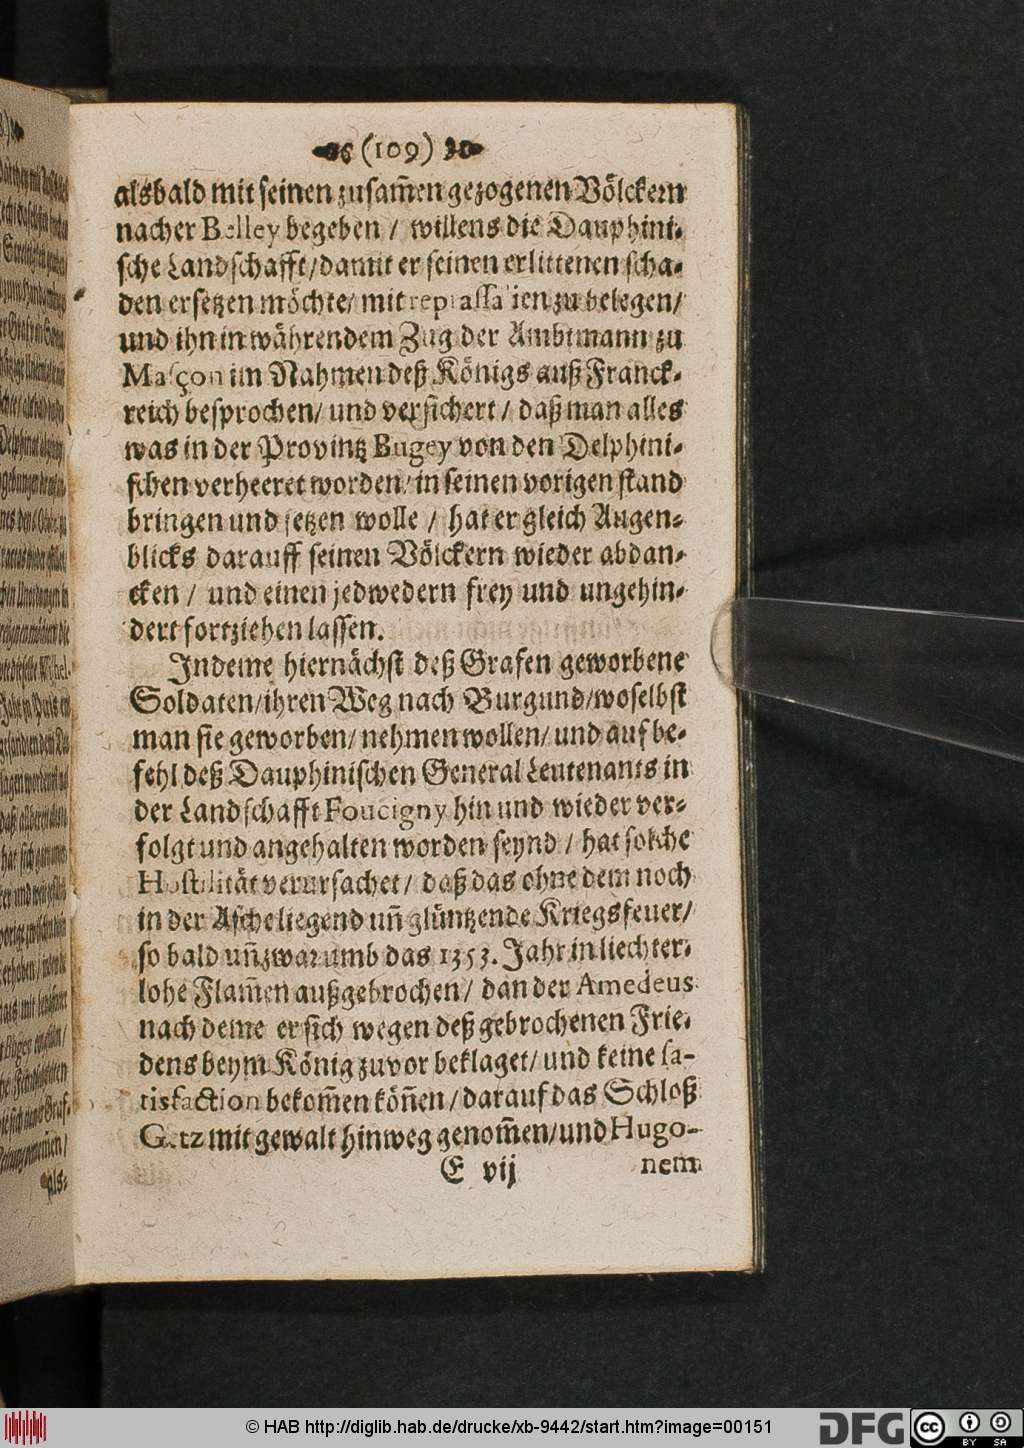 (109)
alsbald mit seinen zusam̃en gezogenen Völckern
nacher Belley begeben / willens die Dauphini-
sche Landschafft/damit er seinen erlittenen scha-
den ersetzen möchte/ mit repraessalien zu belegen/
und ihn in währendem Zug der Ambtmann zu
Masçon im Nahmen deß Königs auß Franck-
reich besprochen/ und versichert / daß man alles
was in der Provintz Bugey von den Delphini-
schen verheeret worden/ in seinen vorigen stand
bringen und setzen wolle / hat er gleich Augen-
blicks darauff seinen Völckern wieder abdan-
cken / und einen jedwedern frey und ungehin-
dert fortziehen lassen.
Indeme hiernächst deß Grafen geworbene
Soldaten/ihren Weg nach Burgund/woselbst
man sie geworben/ nehmen wollen/ und auf be-
fehl deß Dauphinischen General Leutenants in
der Landschafft Foucigny hin und wieder ver-
folgt und angehalten worden seynd / hat solche
Hostilität verursachet/ daß das ohne dem noch
in der Asche liegend uñ glüntzende Kriegsfeuer/
so bald uñ zwar umb das 1353. Jahr in liechter-
lohe Flam̃en außgebrochen/ dan der Amedeus
nach deme er sich wegen deß gebrochenen Frie-
dens beym König zuvor beklaget/ und keine sa-
tisfaction bekom̃en köñen / darauf das Schloß
Getz mit gewalt hinweg genom̃en/und Hugo-
E vij nem
als-
© HAB http://diglib.hab.de/drucke/xb-9442/start.htm?image=00151
DFG
cc
BY SA